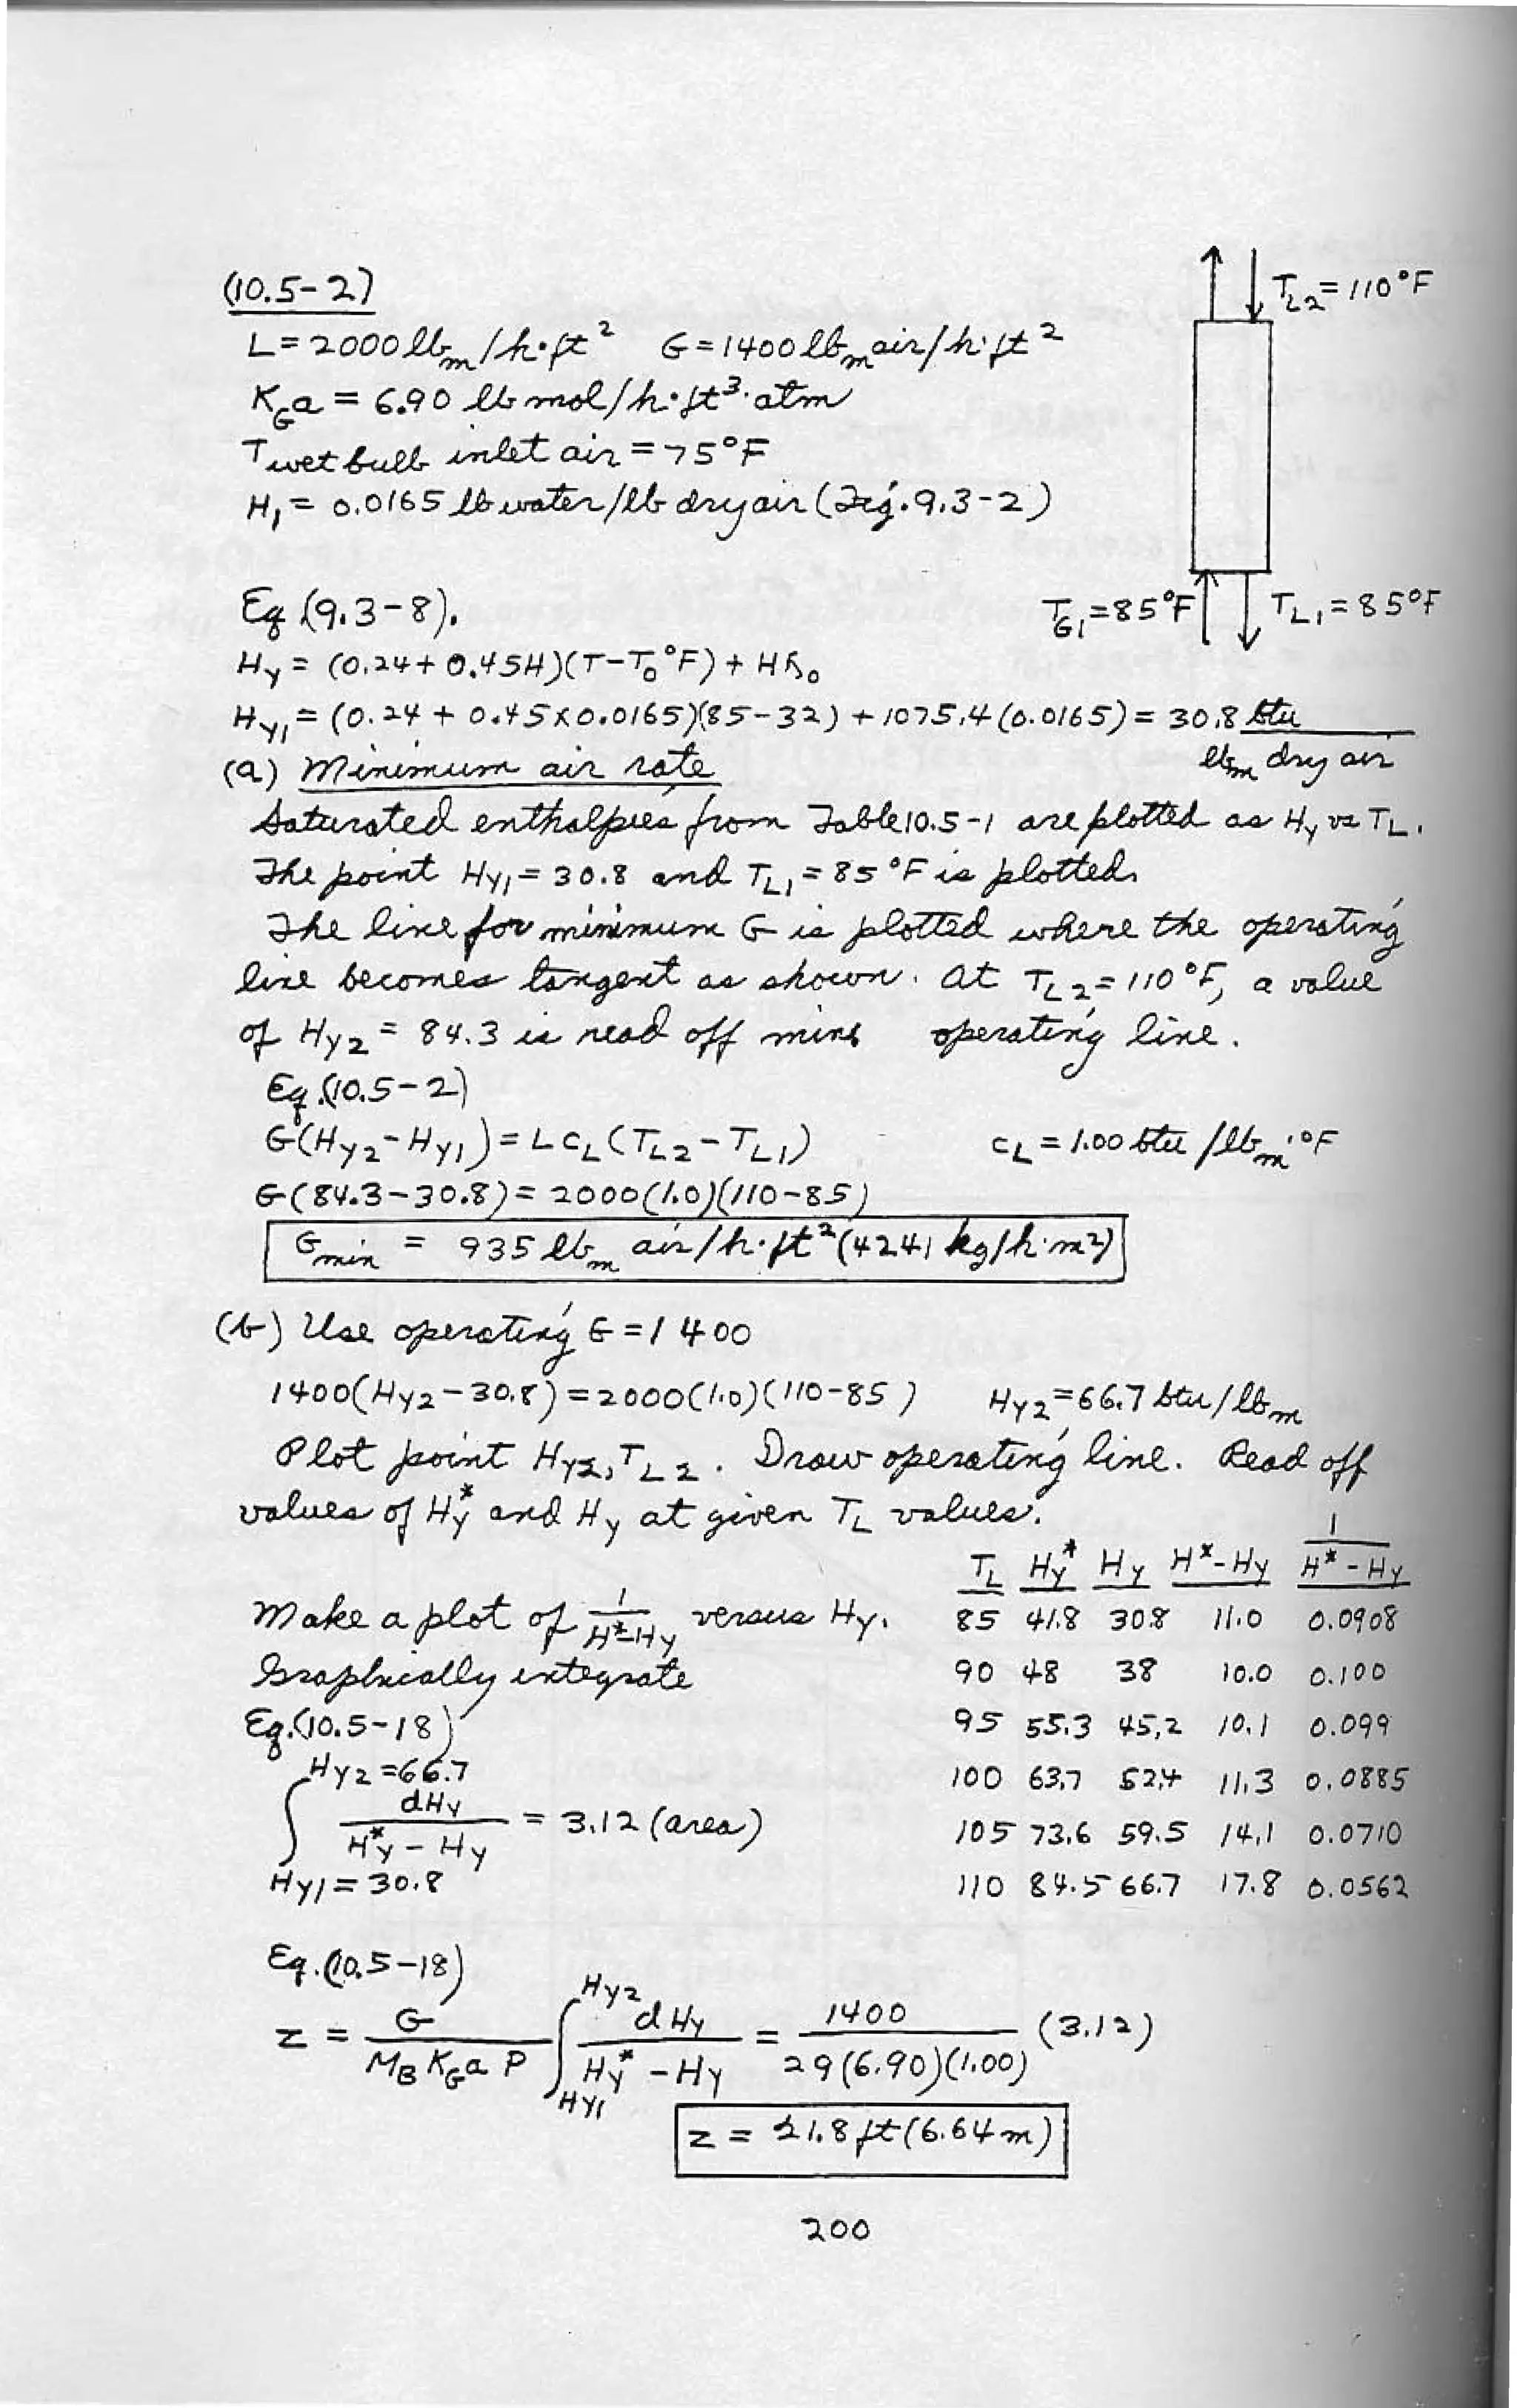 (10.5-2)
T_L2 = 110°F
L = 2000 lbm/h·ft² G = 1400 lbm air/h·ft²
K_G a = 6.90 lb mol/h·ft³·atm
T wet bulb inlet air = 75°F
H₁ = 0.0165 lb water/lb dry air (Fig. 9.3-2)
T_G1 = 85°F T_L1 = 85°F
Eq (9.3-8).
H_y = (0.24 + 0.45H)(T-T₀°F) + Hλ₀
H_y1 = (0.24 + 0.45×0.0165)(85-32) + 1075.4(0.0165) = 30.8 btu/lbm dry air
(a) Minimum air rate
Saturated enthalpies from Table 10.5-1 are plotted as H_y vs T_L.
The point H_y1 = 30.8 and T_L1 = 85°F is plotted.
The line for minimum G is plotted where the operating
line becomes tangent as shown. At T_L2 = 110°F, a value
of H_y2 = 84.3 is read off min. operating line.
Eq.(10.5-2)
G(H_y2 - H_y1) = L c_L (T_L2 - T_L1) c_L = 1.00 btu/lbm·°F
G(84.3-30.8) = 2000(1.0)(110-85)
G_min = 935 lbm air/h·ft² (4241 kg/h·m²)
(b) Use operating G = 1400
1400(H_y2 - 30.8) = 2000(1.0)(110-85) H_y2 = 66.7 btu/lbm
Plot point H_y2, T_L2. Draw operating line. Read off
values of H_y* and H_y at given T_L values.
T_L H_y* H_y H*-H_y 1/(H*-H_y)
Make a plot of 1/(H*-H_y) versus H_y. 85 41.8 30.8 11.0 0.0908
Graphically integrate 90 48 38 10.0 0.100
Eq.(10.5-18) 95 55.3 45.2 10.1 0.099
100 63.7 52.4 11.3 0.0885
∫_{H_y1 = 30.8}^{H_y2 = 66.7} dH_y/(H_y* - H_y) = 3.12 (area) 105 73.6 59.5 14.1 0.0710
110 84.5 66.7 17.8 0.0562
Eq.(10.5-18)
z = G/(M_B K_G a P) ∫_{H_y1}^{H_y2} dH_y/(H_y* - H_y) = 1400/(29(6.90)(1.00)) (3.12)
z = 21.8 ft (6.64 m)
200